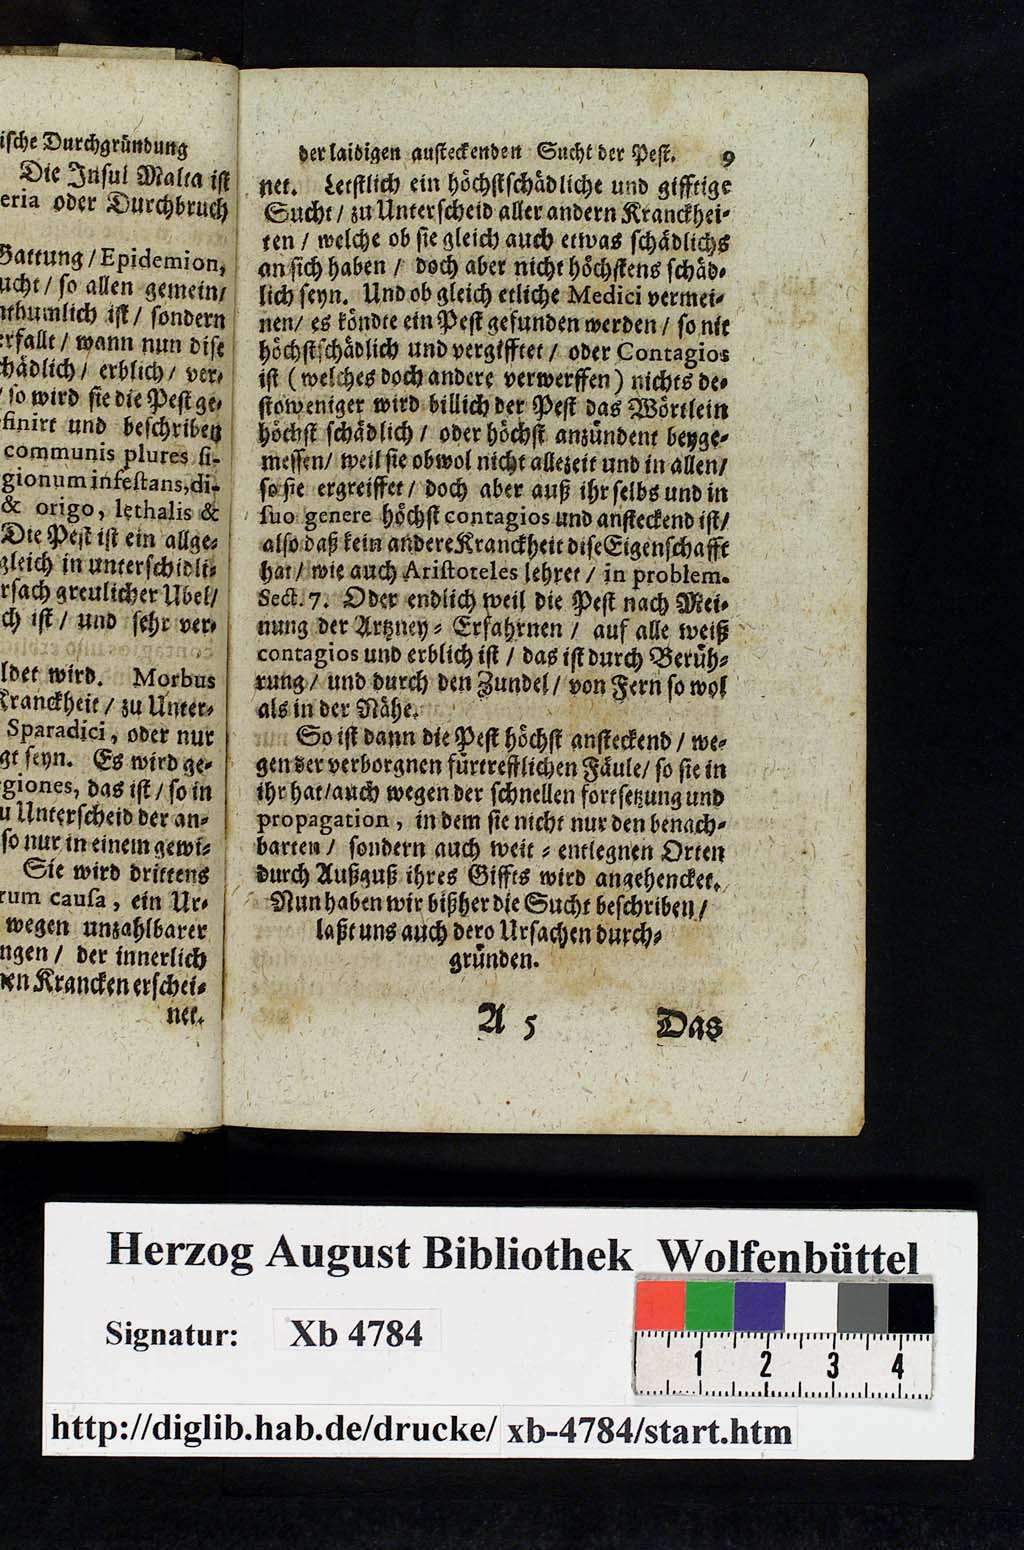 ische Durchgründung
Die Insul Malta ist
eria oder Durchbruch
Gattung / Epidemion,
ucht / so allen gemein /
nthumlich ist / sondern
erfallt / wann nun dise
chädlich / erblich / ver-
/ so wird sie die Pest ge-
finirt und beschriben
communis plures si-
gionum infestans, di-
& origo, lethalis &
Die Pest ist ein allge-
gleich in unterschidli-
rsach greulicher Ubel /
ch ist / und sehr ver-
ldet wird. Morbus
Kranckheit / zu Unter-
Sparadici, oder nur
gt seyn. Es wird ge-
giones, das ist / so in
u Unterscheid der an-
so nur in einem gewi-
Sie wird drittens
rum causa, ein Ur-
wegen unzahlbarer
ngen / der innerlich
nen Krancken erschei-
net.
der laidigen ansteckenden Sucht der Pest. 9
net. Letstlich ein höchstschädliche und gifftige
Sucht / zu Unterscheid aller andern Kranckhei-
ten / welche ob sie gleich auch etwas schädlichs
an sich haben / doch aber nicht höchstens schäd-
lich seyn. Und ob gleich etliche Medici vermei-
nen / es köndte ein Pest gefunden werden / so nit
höchstschädlich und vergifftet / oder Contagios
ist (welches doch andere verwerffen) nichts de-
stoweniger wird billich der Pest das Wörtlein
höchst schädlich / oder höchst anzündent beyge-
messen / weil sie obwol nicht allezeit und in allen /
so sie ergreiffet / doch aber auß ihr selbs und in
suo genere höchst contagios und ansteckend ist /
also daß kein andere Kranckheit dise Eigenschafft
hat / wie auch Aristoteles lehret / in problem.
Sect. 7. Oder endlich weil die Pest nach Mei-
nung der Artzney-Erfahrnen / auf alle weiß
contagios und erblich ist / das ist durch Berüh-
rung / und durch den Zundel / von Fern so wol
als in der Nähe.
So ist dann die Pest höchst ansteckend / we-
gen der verborgnen fürtrefflichen Fäule / so sie in
ihr hat / auch wegen der schnellen fortsetzung und
propagation, in dem sie nicht nur den benach-
barten / sondern auch weit-entlegnen Orten
durch Außguß ihres Giffts wird angehencket.
Nun haben wir bißher die Sucht beschriben /
laßt uns auch dero Ursachen durch-
gründen.
A 5 Das
Herzog August Bibliothek Wolfenbüttel
Signatur: Xb 4784
1 2 3 4
http://diglib.hab.de/drucke/ xb-4784/start.htm